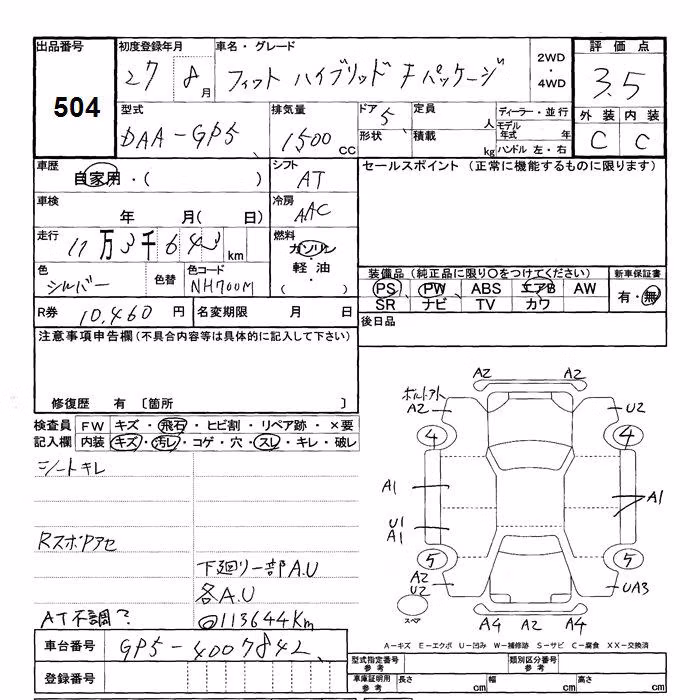 出品番号 初度登録年月 車名・グレード 2WD ・ 4WD 評価点
504
27 8 月 フィット ハイブリッド Fパッケージ 3.5
型式 排気量 ドア 定員 ディーラー・並行 外装 内装
DAA-GP5 1500 CC 5 人 モデル年式 年 C C
形状 積載 kg ハンドル 左・右
車歴 自家用・( ) シフト AT セールスポイント (正常に機能するものに限ります)
車検 年 月( 日) 冷房 AAC
走行 11万3千643km 燃料 ガソリン ・ 軽油 ・ ( )
色 シルバー 色替 色コード NH700M
装備品(純正品に限り○をつけてください) 新車保証書
PS PW ABS エアB AW 有・無
SR ナビ TV カワ
R券 10,460 円 名変期限 月 日 後日品
注意事項申告欄(不具合内容等は具体的に記入して下さい)
修復歴 有 〔箇所 〕
検査員 FW キズ・飛石・ヒビ割・リペア跡・×要
記入欄 内装 キズ・汚レ・コゲ・穴・スレ・キレ・破レ
シートキレ
RスポPアセ
下廻リ一部A.U
各A.U
AT不調?
◎113644Km
車台番号 GP5-4007842
登録番号
A2 A2
ボルトアト
A2 U2
4 4
A1 A1
U1
A1
5 5
A2
U2 UA3
スペア
A4 A2 A4
A-キズ E-エクボ U-凹み W-補修跡 S-サビ C-腐食 XX-交換済
型式指定番号 参考 類別区分番号 参考
車庫証明用 参考 長さ cm 幅 cm 高さ cm